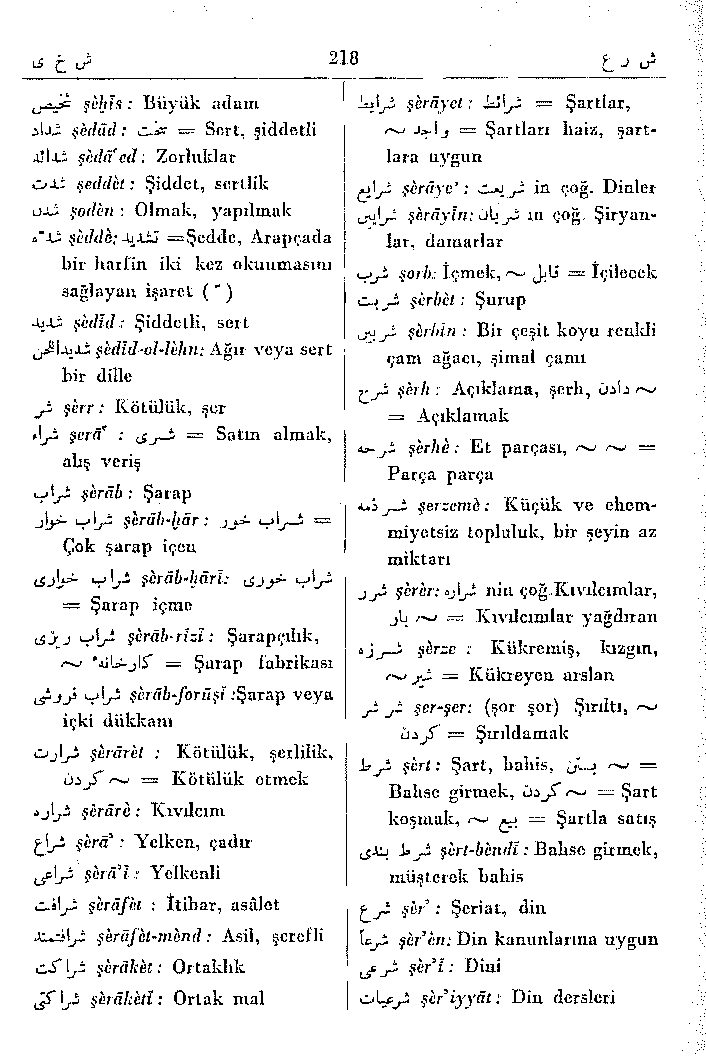 ش خ ی 218 ش ر ع
شخیص şèḫīs : Büyük adam
شداد şèdād : سخت = Sert, şiddetli
شدائد şèdā'ed : Zorluklar
شدت şeddèt : Şiddet, sertlik
شدن şoden : Olmak, yapılmak
شدّه şèddè: تشدید =Şedde, Arapçada
bir harfin iki kez okunmasını
sağlayan işaret ( ّ )
شدید şèdīd : Şiddetli, sert
شدیداللحن şèdīd-ol-lèhn: Ağır veya sert
bir dille
شر şèrr : Kötülük, şer
شراء şerā' : شری = Satın almak,
alış veriş
شراب şèrāb : Şarap
شراب خوار şèrāb-ḫār : شراب خور =
Çok şarap içen
شراب خواری şèrāb-ḫārī: شراب خوری
= Şarap içme
شراب ریزی şèrāb-rīzī : Şarapçılık,
کارخانه ~ = Şarap fabrikası
شراب فروشی şèrāb-forūşī :Şarap veya
içki dükkanı
شرارت şèrārèt : Kötülük, şerlilik,
~ کردن = Kötülük etmek
شراره şèrārè : Kıvılcım
شراع şèrā' : Yelken, çadır
شراعی şèrā'ī : Yelkenli
شرافت şèrāfèt : İtibar, asâlet
شرافتمند şèrāfèt-mènd : Asil, şerefli
شراکت şèrākèt : Ortaklık
شراکتی şèrākètī : Ortak mal
شرایط şèrāyet : شرائط = Şartlar,
واجد ~ = Şartları haiz, şart-
lara uygun
شرایع şèrāye' : شریعت in çoğ. Dinler
شرایین şèrāyīn: شریان ın çoğ. Şiryan-
lar, damarlar
شرب şorb: İçmek, ~ قابل = İçilecek
شربت şèrbèt : Şurup
شربین şèrbin : Bir çeşit koyu renkli
çam ağacı, şimal çamı
شرح şèrh : Açıklama, şerh, ~ دادن
= Açıklamak
شرحه şèrhè : Et parçası, ~ ~ =
Parça parça
شرذمه şerzemè : Küçük ve ehem-
miyetsiz topluluk, bir şeyin az
miktarı
شرر şèrèr: شراره nin çoğ.Kıvılcımlar,
~ بار = Kıvılcımlar yağdıran
شرزه şèrze : Kükremiş, kızgın,
شیر ~ = Kükreyen arslan
شر شر şer-şer: (şor şor) Şırıltı, ~
کردن = Şırıldamak
شرط şèrt : Şart, bahis, ~ بستن =
Bahse girmek, ~ کردن = Şart
koşmak, ~ بیع = Şartla satış
شرط بندی şèrt-bèndī : Bahse girmek,
müşterek bahis
شرع şèr' : Şeriat, din
شرعاً şèr'èn: Din kanunlarına uygun
شرعی şèr'ī : Dini
شرعیات şèr'iyyāt : Din dersleri